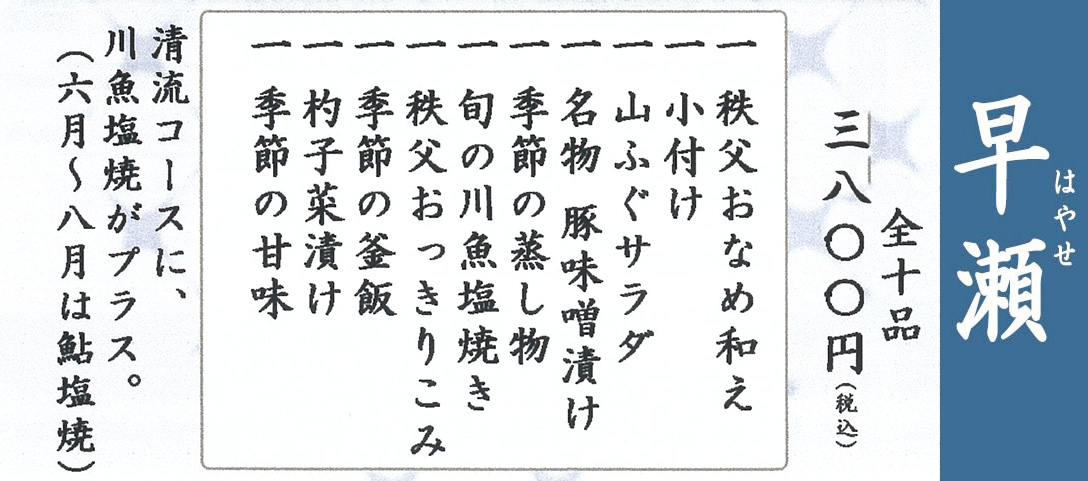 早瀬
はやせ
全十品
三八〇〇円(税込)
一 秩父おなめ和え
一 小付け
一 山ふぐサラダ
一 名物 豚味噌漬け
一 季節の蒸し物
一 旬の川魚塩焼き
一 秩父おっきりこみ
一 季節の釜飯
一 杓子菜漬け
一 季節の甘味
清流コースに、
川魚塩焼がプラス。
(六月~八月は鮎塩焼)